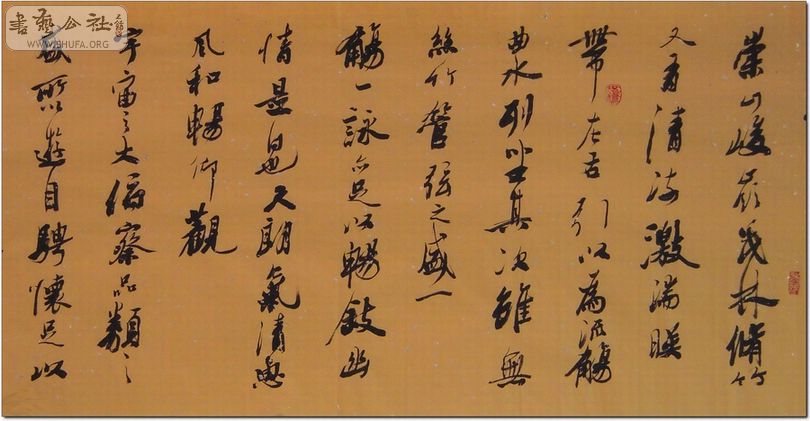 崇山峻岭茂林修竹
又有清流激湍映
带左右引以为流觞
曲水列坐其次虽无
丝竹管弦之盛一
觞一詠亦足以畅叙幽
情是日也天朗气清惠
风和畅仰觀
宇宙之大俯察品類之
盛所以遊目骋懷足以
書藝公社
WWW.SHUFA.ORG